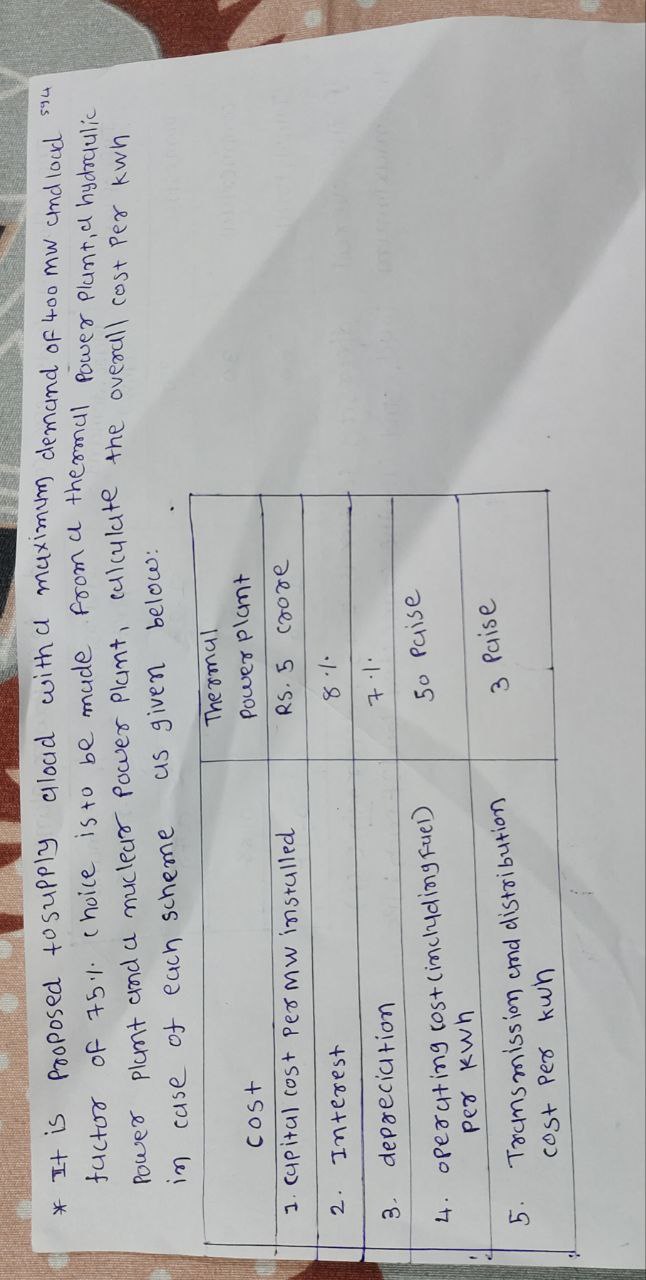 * It is proposed to supply a load with a maximum demand of 400 MW and load 594
factor of 75%. Choice is to be made from a thermal power plant, a hydraulic
power plant and a nuclear power plant, calculate the overall cost per kwh
in case of each scheme as given below:
cost Thermal power plant
1. capital cost per MW installed RS. 5 crore
2. Interest 8%
3. depreciation 7%
4. operating cost (including fuel) 50 paise
per kwh
5. Transmission and distribution 3 paise
cost per kwh